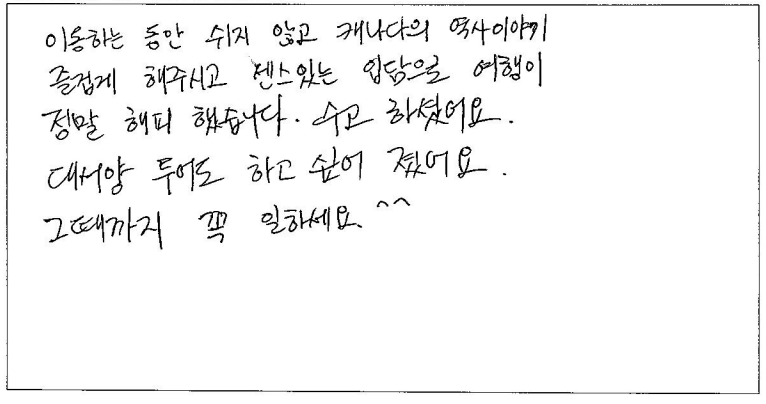 이동하는 동안 쉬지 않고 캐나다의 역사이야기
즐겁게 해주시고 센스있는 입담으로 여행이
정말 해피 했습니다. 수고 하셨어요.
대서양 투어도 하고 싶어 졌어요.
그때까지 꼭 일하세요. ^^